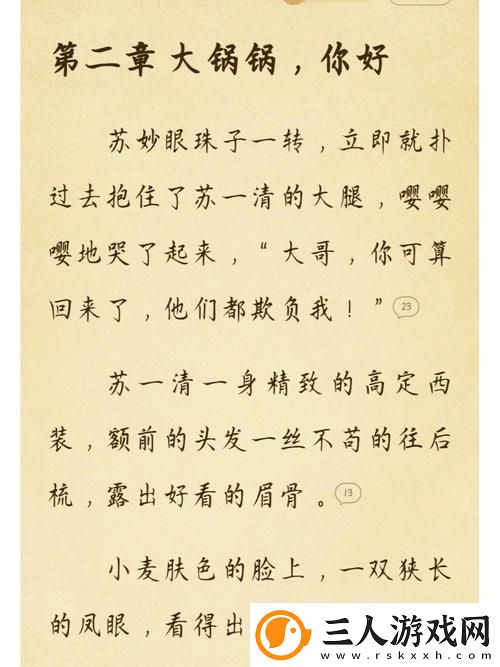 第二章 大锅锅，你好
苏妙眼珠子一转，立即就扑
过去抱住了苏一清的大腿，嘤嘤
嘤地哭了起来，“大哥，你可算
回来了，他们都欺负我！” 23
苏一清一身精致的高定西
装，额前的头发一丝不苟的往后
梳，露出好看的眉骨。 13
小麦肤色的脸上，一双狭长
的凤眼，看得出
三人游戏网
www.rskxxh.com